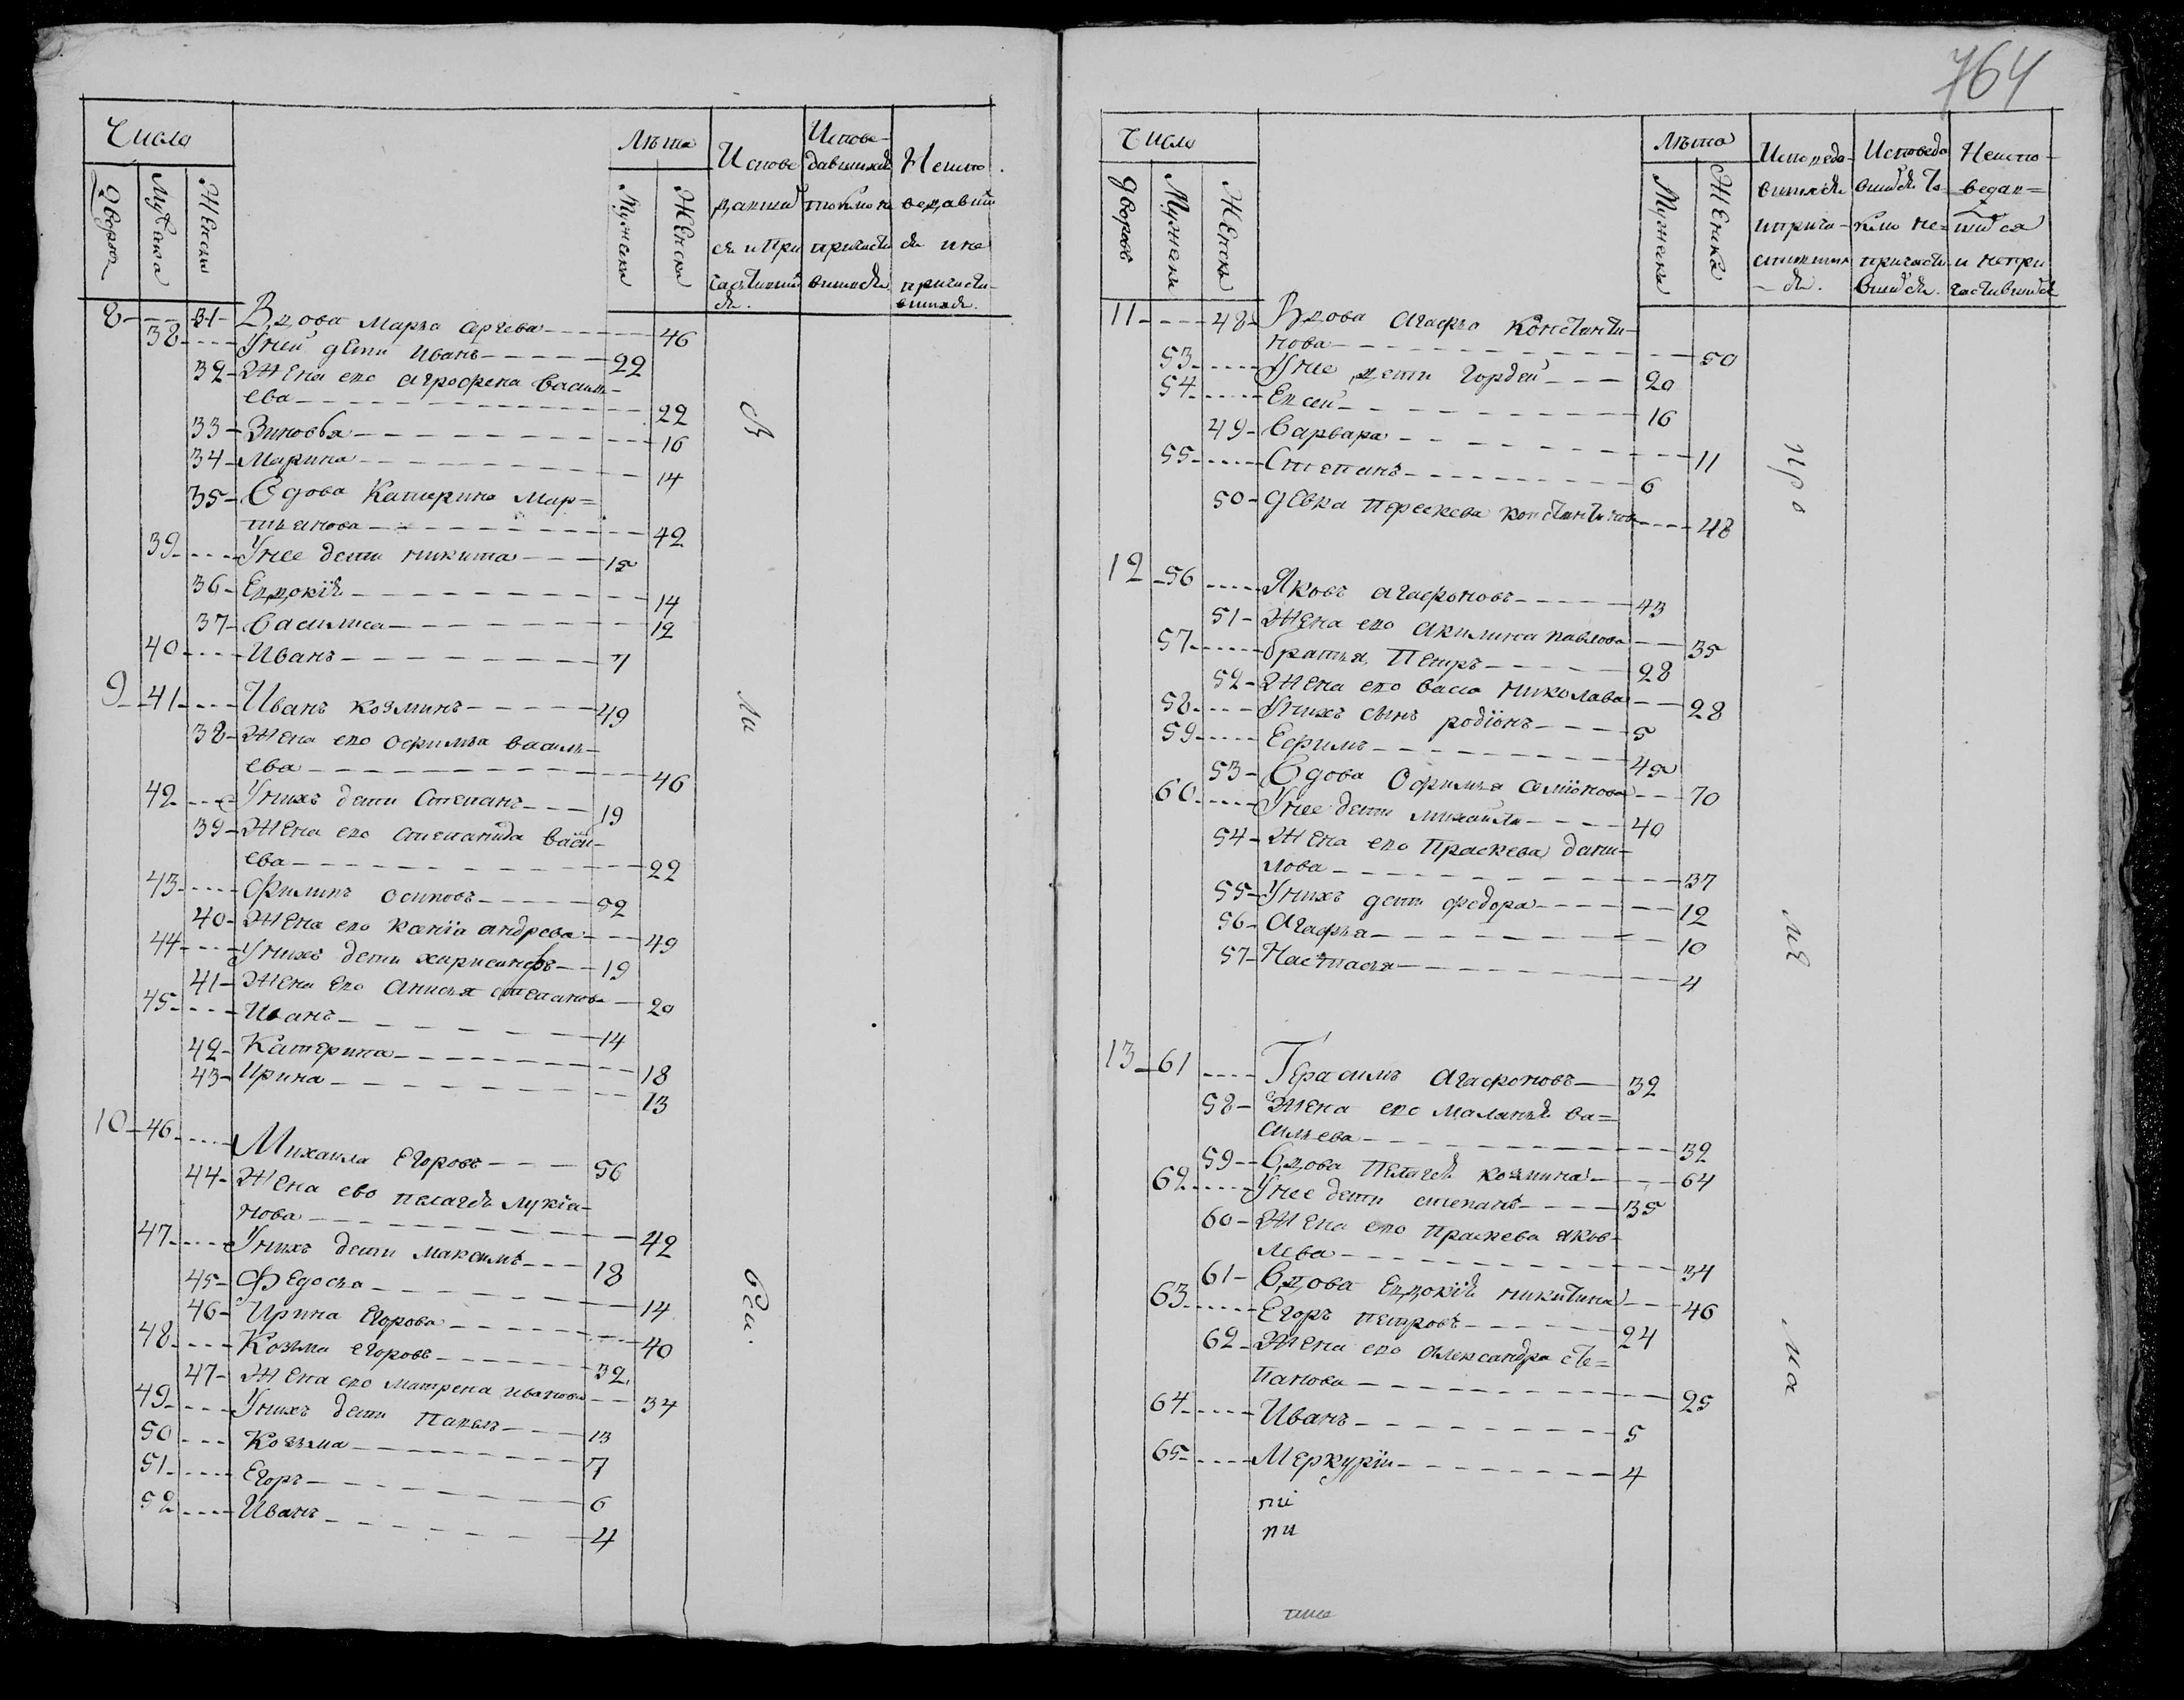 764
Число
Дворов
Мужска
Женски
Лѣта
Мужска
Женска
Испове
давший
ся и При
частивший
ся.
Испове-
давшийся
токмо не
причасти
вшийся
Неиспо
ведавши
ся и не
причасти-
вшийся.
8 31 Вдова Марѳа Сергева 46
38 У ней дети Иванъ 22
32 Жена его агрофена Василь-
ева 22
33 Зиновья 16
34 Марина 14
35 Вдова Катерина Мар=
тьянова 42
39 У нее дети никита 15
36 Евдокія 14
37 Василиса 12
40 Иванъ 7
9 41 Иванъ козминъ 49
38 Жена его Офимья василь-
ева 46
42 У нихъ дети Степанъ 19
39 Жена его степанида васи-
ева 22
43 Филипъ осиповъ 52
40 Жена его ксенія андрева 49
44 У нихъ дети хрисанфъ 19
41 Жена его Анисья степанова 20
45 Иванъ 14
42 Катерина 18
43 Ирина 13
10 46 Михаила Егоровъ 56
44 Жена ево пелагея лукіа-
нова 42
47 У нихъ дети максимъ 18
45 Федосья 14
46 Ирина Егорова 40
48 Козма егоровъ 32
47 Жена его матрена иванова 34
49 У нихъ дети Павелъ 13
50 Козьма 7
51 Егоръ 6
52 Иванъ 4
ли
Число
дворовъ
Мужеска
Женска
Лѣта
Мужеска
Женска
Исповеда-
вшийся
и прича-
стившия
-ся.
Исповеда
вшийся то
кмо не=
причасти
вшийся.
Неиспо-
ведав=
шийся
и непри
частившийся
11 48 Вдова Агафья Констинти-
нова 50
53 У нее дети Гордей 20
54 Евсей 16
49 Варвара 11
55 Степанъ 6
50 девка Пораскева констинтинова 48
12 56 Яковъ агафоновъ 43
51 Жена его Акилина павлова 35
57 братья, Петръ 28
52 Жена его васса николава 28
58 У нихъ сынъ родіонъ 5
59 Ефимъ 40
53 Вдова Офимья семіонова 70
60 У нее дети михаила 40
54 Жена его Праскева дани-
лова 37
55 У нихъ дети федора 12
56 Агафья 10
57 Настасья 4
13 61 Герасимъ Агафоновъ 32
58 Жена его маланья ва=
сильева 32
59 Вдова Пелагея козмина 64
62 У нее дети степанъ 35
60 Жена его праскева яков-
лева 34
61 Вдова Евдокія никитина 46
63 Егоръ петровъ 24
62 Жена его Александра сте=
панова 25
64 Иванъ 5
65 Меркурій 4
пі
пи